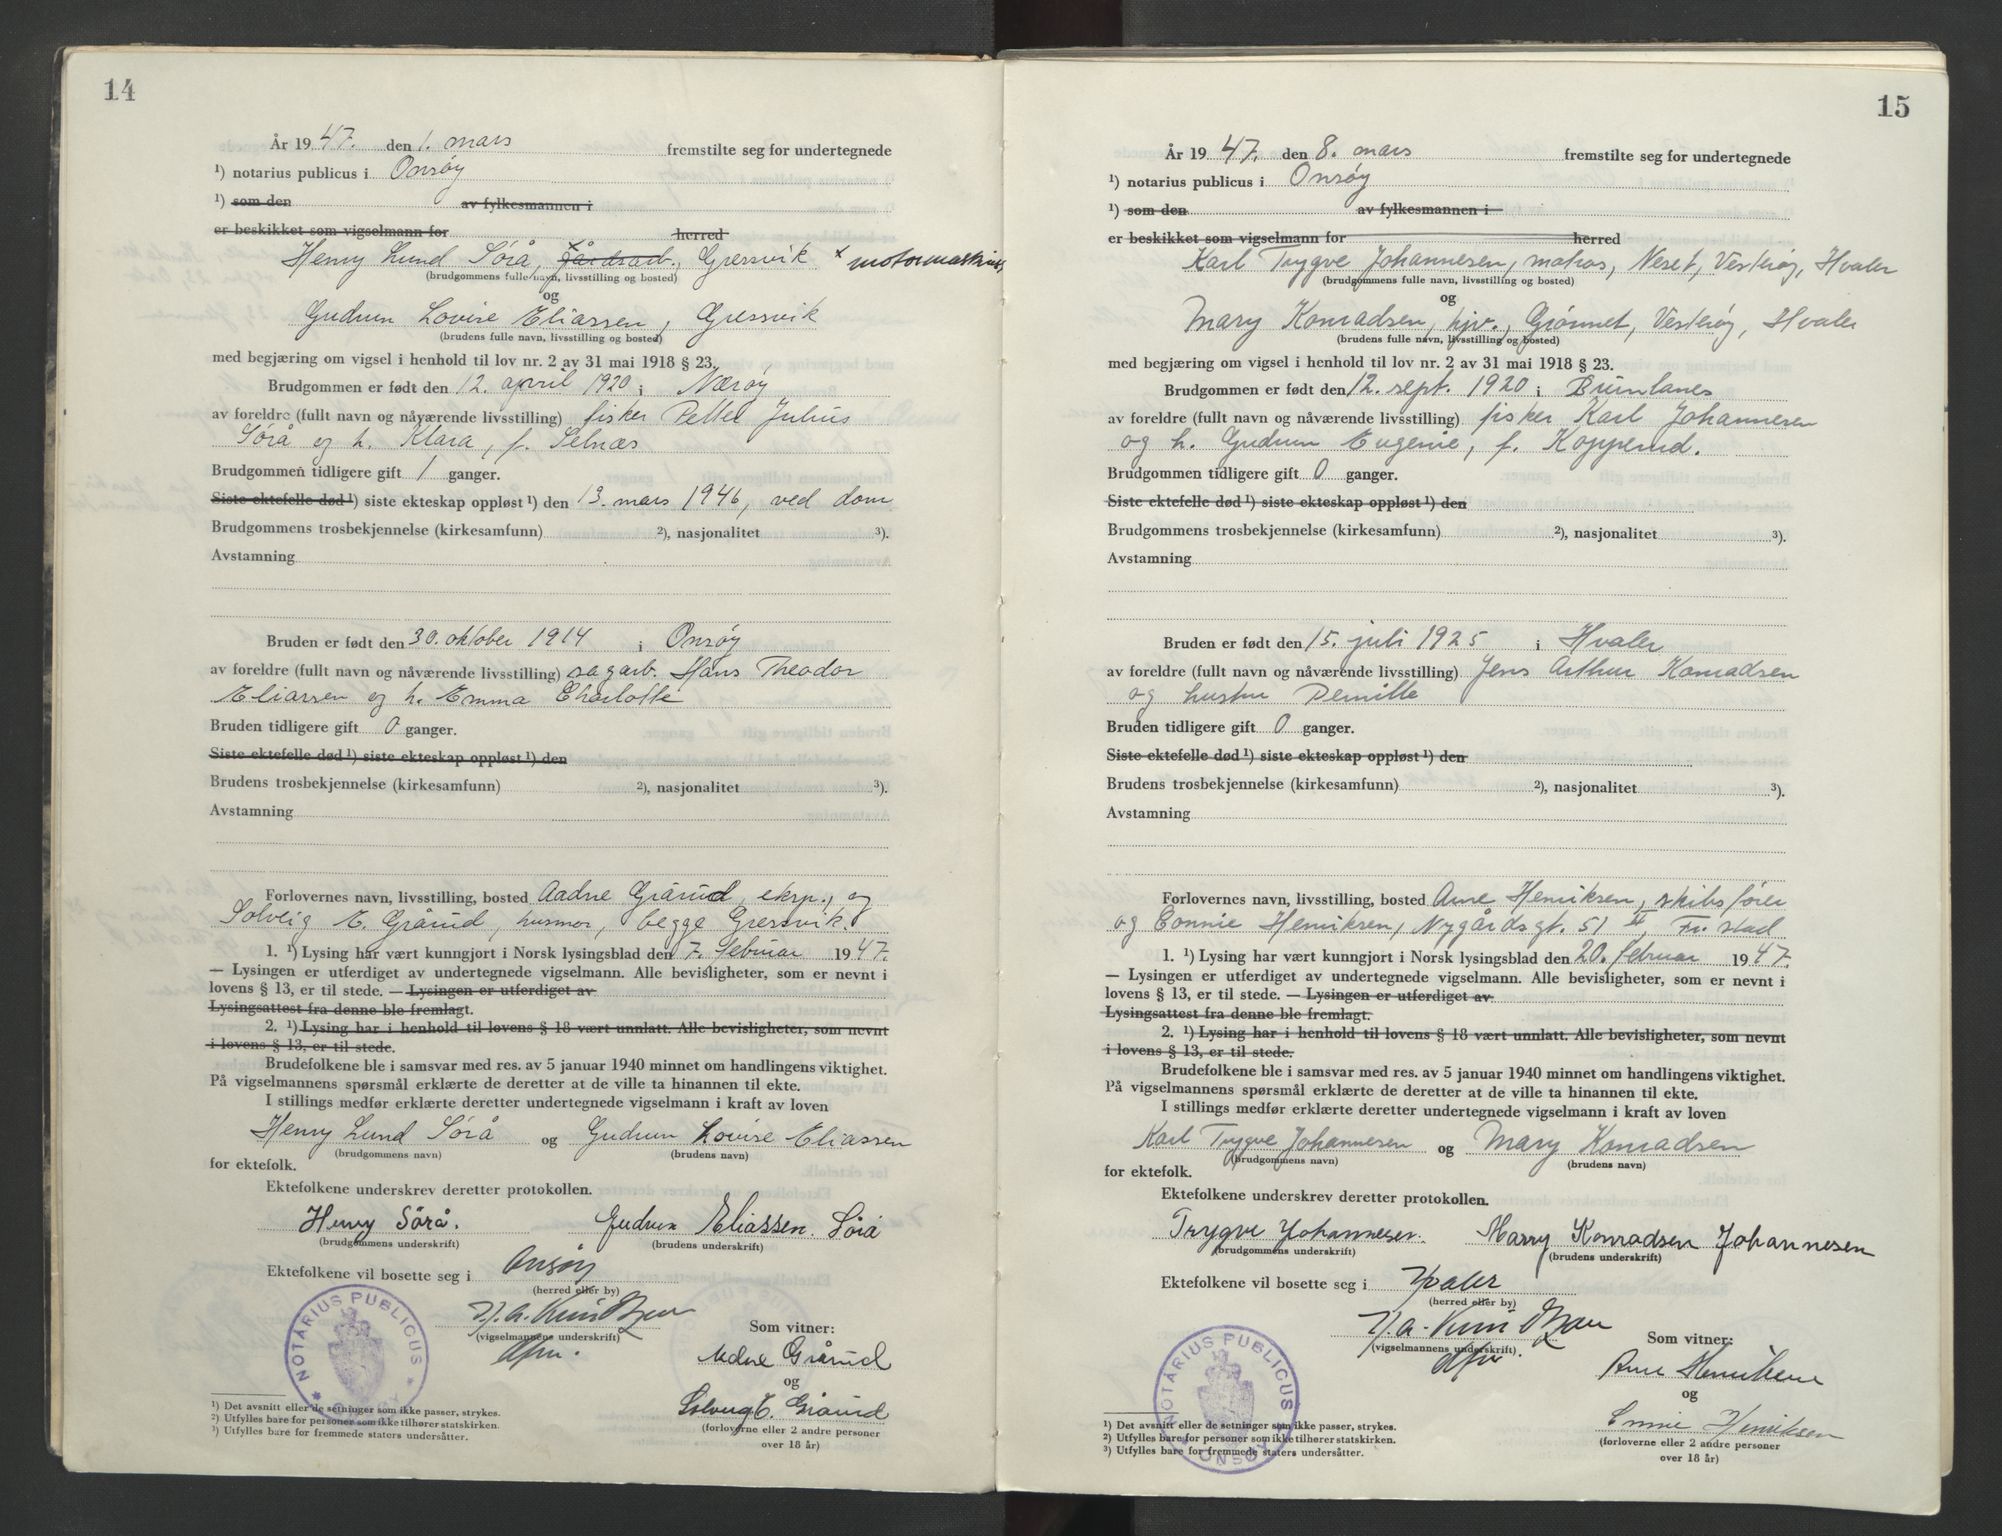 14
År 1947. den 1. mars fremstilte seg for undertegnede
¹) notarius publicus i Onsøy
¹) som den av fylkesmannen i
er beskikket som vigselmann for herred
Henry Lund Sørå, gårdsarb., Gressvik x motormaskinist,
(brudgommens fulle navn, livsstilling og bosted)
og
Gudrun Lovise Eliassen, Gressvik
(brudens fulle navn, livsstilling og bosted)
med begjæring om vigsel i henhold til lov nr. 2 av 31 mai 1918 § 23.
Brudgommen er født den 12. april 1920 i Nærøy
av foreldre (fullt navn og nåværende livsstilling) fisker Petter Julius
Sørå og h. Klara, f. Selnæs
Brudgommen tidligere gift 1 ganger.
Siste ektefelle død ¹) siste ekteskap oppløst ¹) den 13. mars 1946, ved dom
Brudgommens trosbekjennelse (kirkesamfunn) ²), nasjonalitet ³).
Avstamning
Bruden er født den 30. oktober 1914 i Onsøy
av foreldre (fullt navn og nåværende livsstilling) sagarb. Hans Theodor
Eliassen og h. Emma Charlotte
Bruden tidligere gift 0 ganger.
Siste ektefelle død ¹) siste ekteskap oppløst ¹) den
Brudens trosbekjennelse (kirkesamfunn) ²), nasjonalitet ³).
Avstamning
Forlovernes navn, livsstilling, bosted Aadne Grårud, eksp., og
Solveig E. Grårud, husmor, begge Gressvik.
1. ¹) Lysing har vært kunngjort i Norsk lysingsblad den 7. februar 1947.
— Lysingen er utferdiget av undertegnede vigselmann. Alle bevisligheter, som er nevnt i
lovens § 13, er til stede. — Lysingen er utferdiget av
Lysingsattest fra denne ble fremlagt.
2. ¹) Lysing har i henhold til lovens § 18 vært unnlatt. Alle bevisligheter, som nevnt
i lovens § 13, er til stede.
Brudefolkene ble i samsvar med res. av 5 januar 1940 minnet om handlingens viktighet.
På vigselmannens spørsmål erklærte de deretter at de ville ta hinannen til ekte.
I stillings medfør erklærte deretter undertegnede vigselmann i kraft av loven
Henry Lund Sørå og Gudrun Lovise Eliassen
(brudgommens navn) (brudens navn)
for ektefolk.
Ektefolkene underskrev deretter protokollen.
Henry Sørå. Gudrun Eliassen. Sørå
(brudgommens underskrift) (brudens underskrift)
Ektefolkene vil bosette seg i Onsøy
(herred eller by)
(vigselmannens underskrift)
Som vitner:
Adne Grårud
og
Solveig E. Grårud
(forloverne eller 2 andre personer
over 18 år)
NOTARIUS PUBLICUS
¹) Det avsnitt eller de setninger som ikke passer, strykes.
²) Utfylles bare for personer som ikke tilhører statskirken.
³) Utfylles bare for fremmede staters undersåtter.
15
År 1947. den 8. mars fremstilte seg for undertegnede
¹) notarius publicus i Onsøy
¹) som den av fylkesmannen i
er beskikket som vigselmann for herred
Karl Trygve Johannesen, matros, Neset, Vesterøy, Hvaler
(brudgommens fulle navn, livsstilling og bosted)
og
Mary Konradsen, hjv., Grønnet, Vesterøy, Hvaler
(brudens fulle navn, livsstilling og bosted)
med begjæring om vigsel i henhold til lov nr. 2 av 31 mai 1918 § 23.
Brudgommen er født den 12. sept. 1920 i Brunlanes
av foreldre (fullt navn og nåværende livsstilling) fisker Karl Johannesen
og h. Gudrun Eugenie, f. Kopperud.
Brudgommen tidligere gift 0 ganger.
Siste ektefelle død ¹) siste ekteskap oppløst ¹) den
Brudgommens trosbekjennelse (kirkesamfunn) ²), nasjonalitet ³).
Avstamning
Bruden er født den 15. juli 1925 i Hvaler
av foreldre (fullt navn og nåværende livsstilling) Jens Arthur Konradsen
og hustru Pernille
Bruden tidligere gift 0 ganger.
Siste ektefelle død ¹) siste ekteskap oppløst ¹) den
Brudens trosbekjennelse (kirkesamfunn) ²), nasjonalitet ³).
Avstamning
Forlovernes navn, livsstilling, bosted Arne Henriksen, skibsfører
og Connie Henriksen, Nygårdsgt. 51 II, Fr.stad
1. ¹) Lysing har vært kunngjort i Norsk lysingsblad den 20. februar 1947.
— Lysingen er utferdiget av undertegnede vigselmann. Alle bevisligheter, som er nevnt i
lovens § 13, er til stede. — Lysingen er utferdiget av
Lysingsattest fra denne ble fremlagt.
2. ¹) Lysing har i henhold til lovens § 18 vært unnlatt. Alle bevisligheter, som nevnt
i lovens § 13, er til stede.
Brudefolkene ble i samsvar med res. av 5 januar 1940 minnet om handlingens viktighet.
På vigselmannens spørsmål erklærte de deretter at de ville ta hinannen til ekte.
I stillings medfør erklærte deretter undertegnede vigselmann i kraft av loven
Karl Trygve Johannesen og Mary Konradsen
(brudgommens navn) (brudens navn)
for ektefolk.
Ektefolkene underskrev deretter protokollen.
Trygve Johannesen. Marry Konradsen Johannesen
(brudgommens underskrift) (brudens underskrift)
Ektefolkene vil bosette seg i Hvaler
(herred eller by)
(vigselmannens underskrift).
Som vitner:
Arne Henriksen
og
Connie Henriksen
(forloverne eller 2 andre personer
over 18 år)
NOTARIUS PUBLICUS ONSØY
¹) Det avsnitt eller de setninger som ikke passer, strykes.
²) Utfylles bare for personer som ikke tilhører statskirken.
³) Utfylles bare for fremmede staters undersåtter.